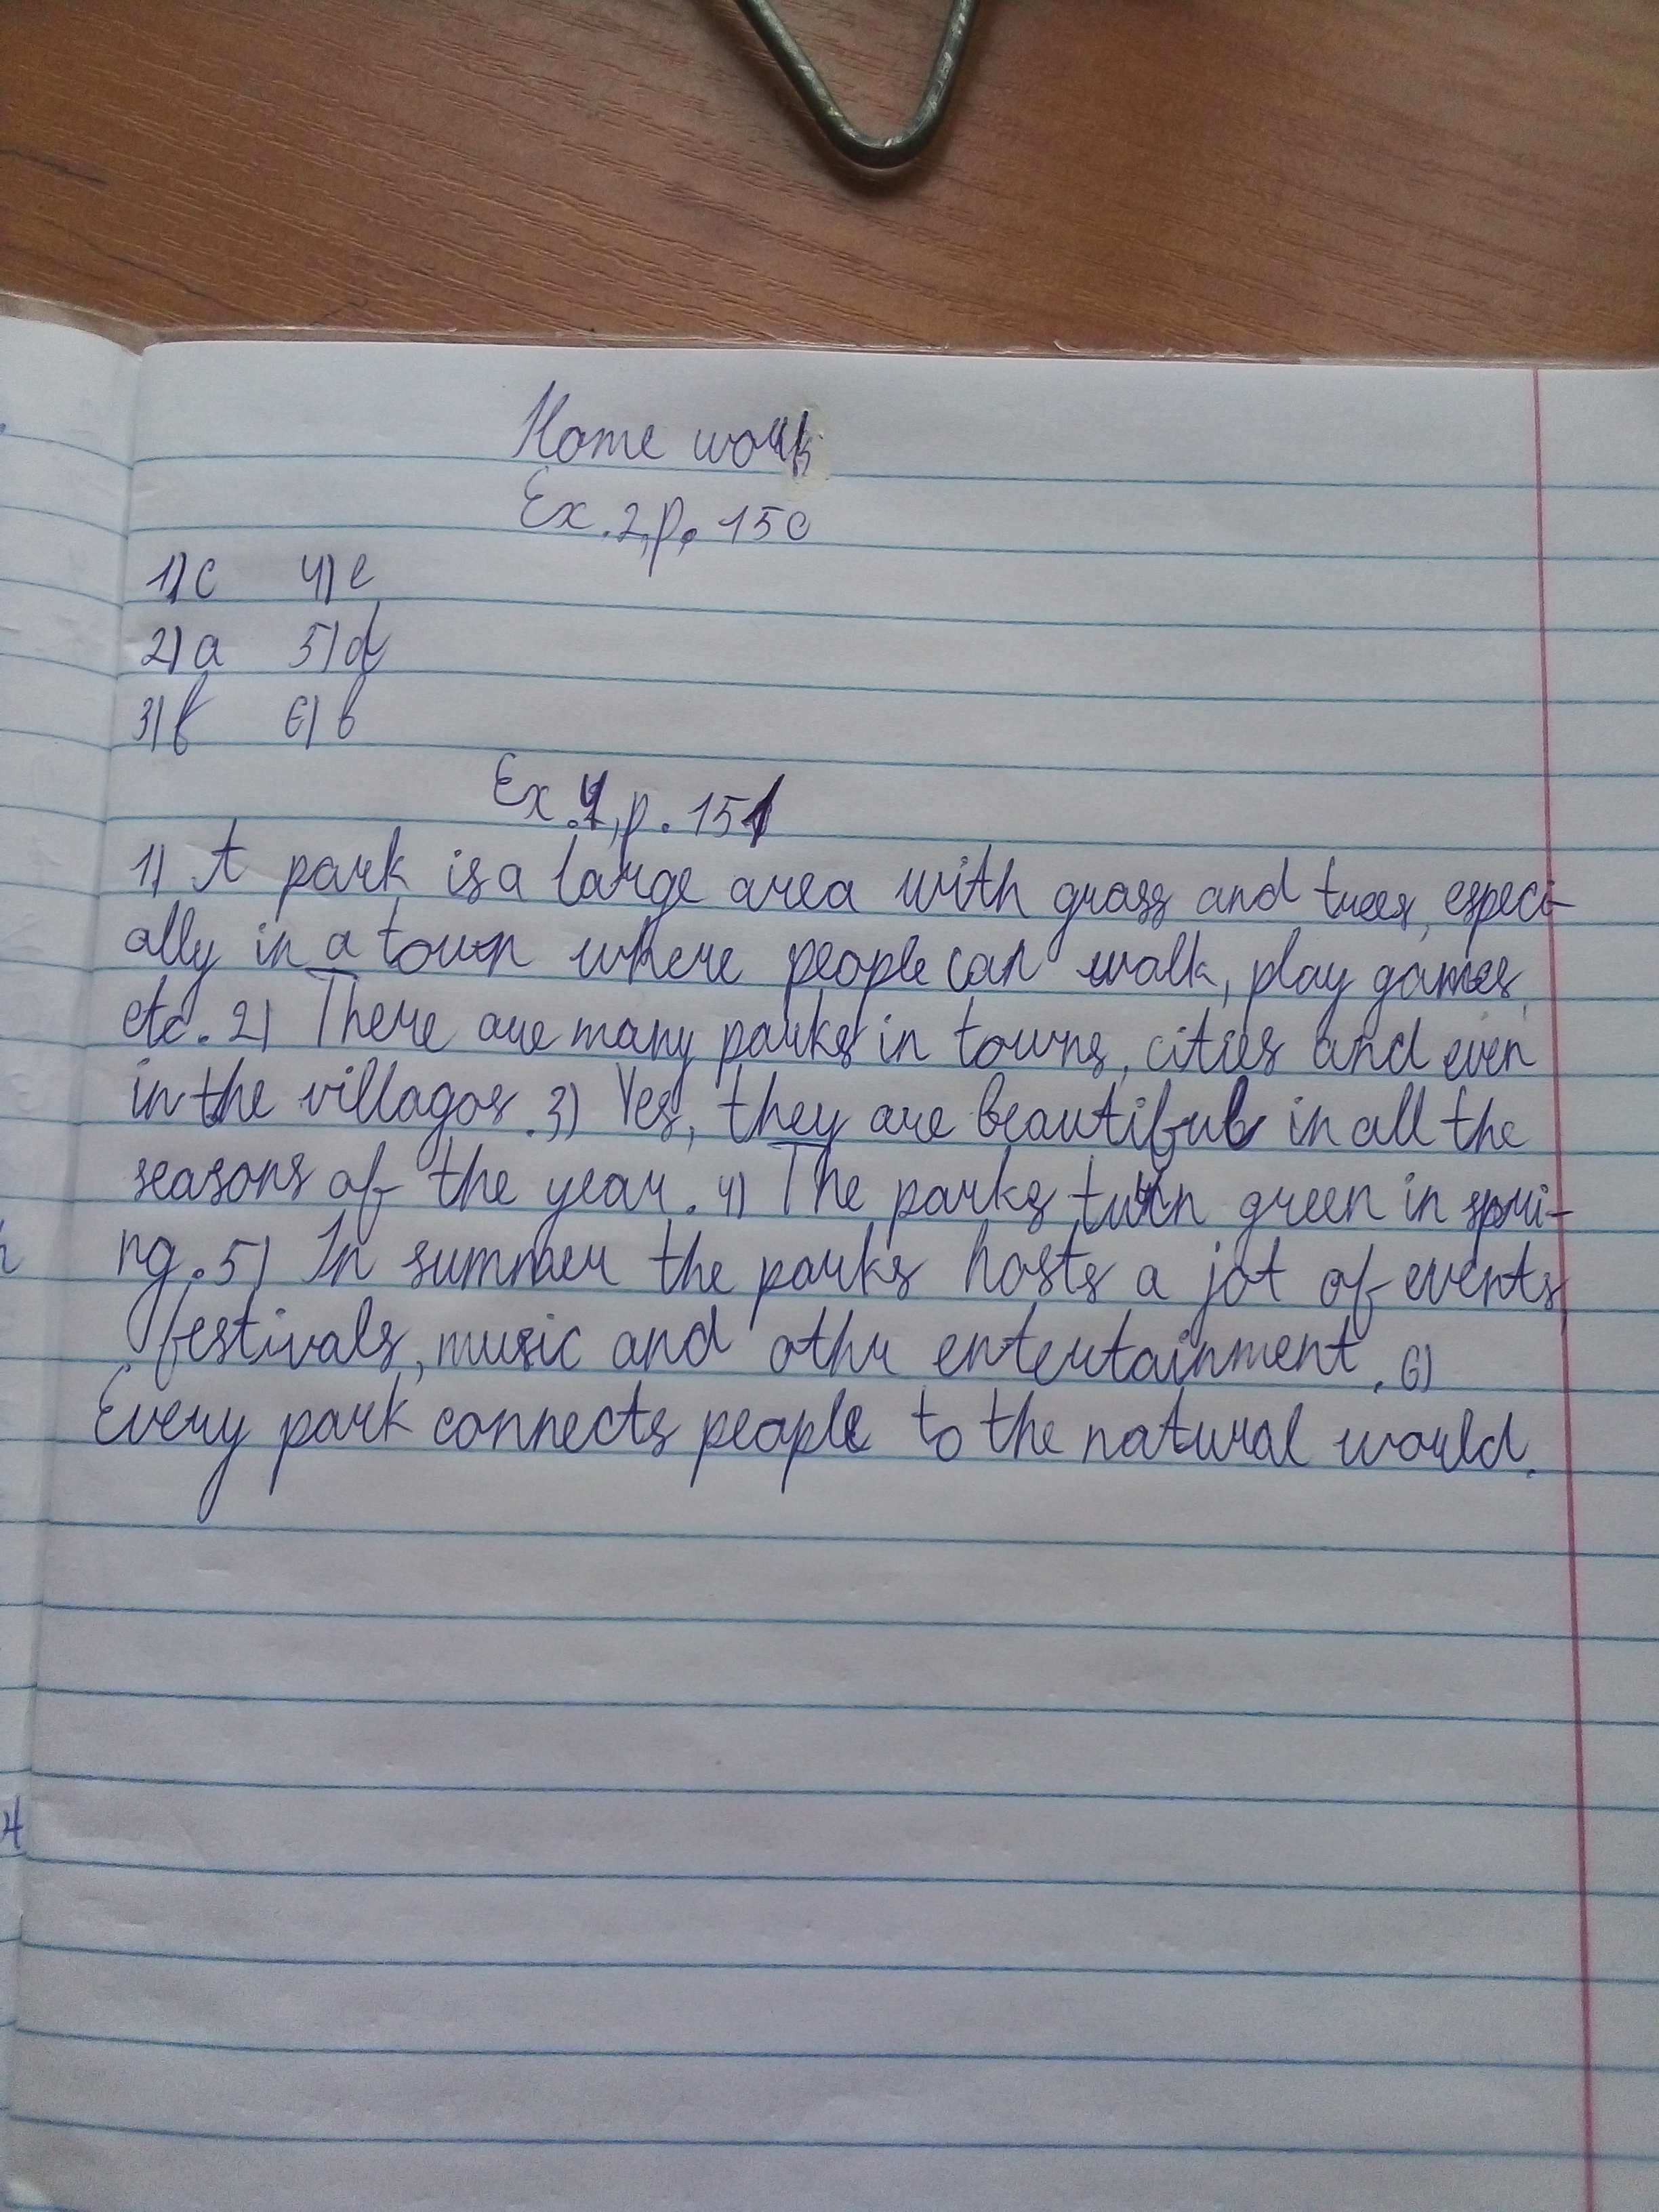 Home work
Ex. 2, p. 150
1) c 4) e
2) a 5) d
3) f 6) b
Ex. 4, p. 151
1) A park is a large area with grass and trees, especi-
ally in a town where people can walk, play games,
etc. 2) There are many parks in towns, cities and even
in the villagos. 3) Yes, they are beautiful in all the
seasons of the year. 4) The parks turn green in spri-
ng. 5) In summer the parks hosts a jot of events,
festivals, music and othr entertainment. 6)
Every park connects people to the natural world.